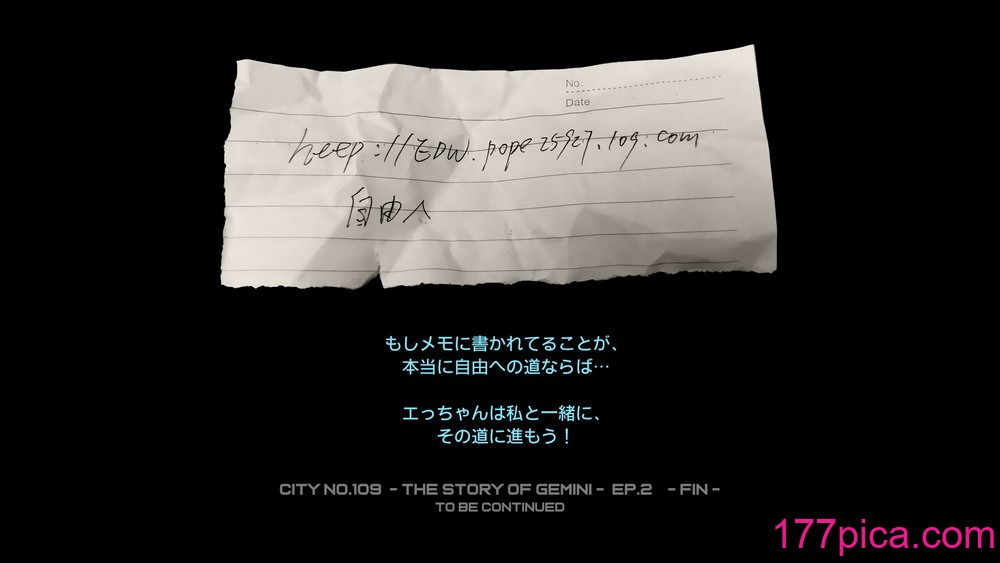 No.
Date
heep://EDW.pope25927.log.com
自由へ
もしメモに書かれてることが、
本当に自由への道ならば…
エっちゃんは私と一緒に、
その道に進もう！
CITY NO.109 - THE STORY OF GEMINI - EP.2 - FIN -
TO BE CONTINUED
177pica.com